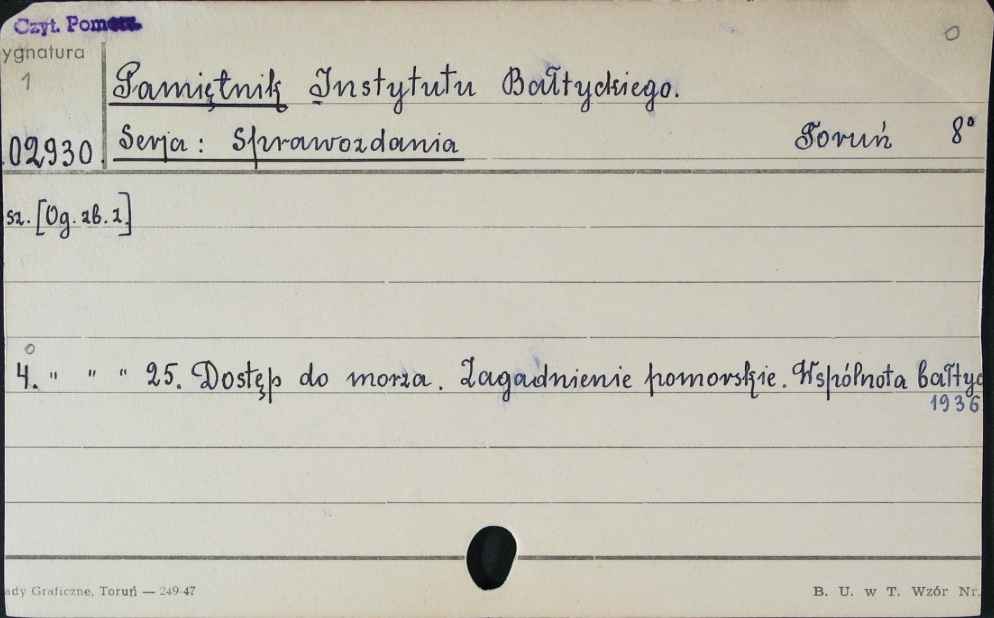 Czyt. Pomorz.
ygnatura
1
Pamiętnik Instytutu Bałtyckiego.
02930
Serja: Sprawozdania Toruń 8°
sz. [Og. zb. z.]
4. " " " 25. Dostęp do morza. Zagadnienie pomorskie. Wspólnota bałtyc
1936
ady Graficzne, Toruń — 249-47
B. U. w T. Wzór Nr.